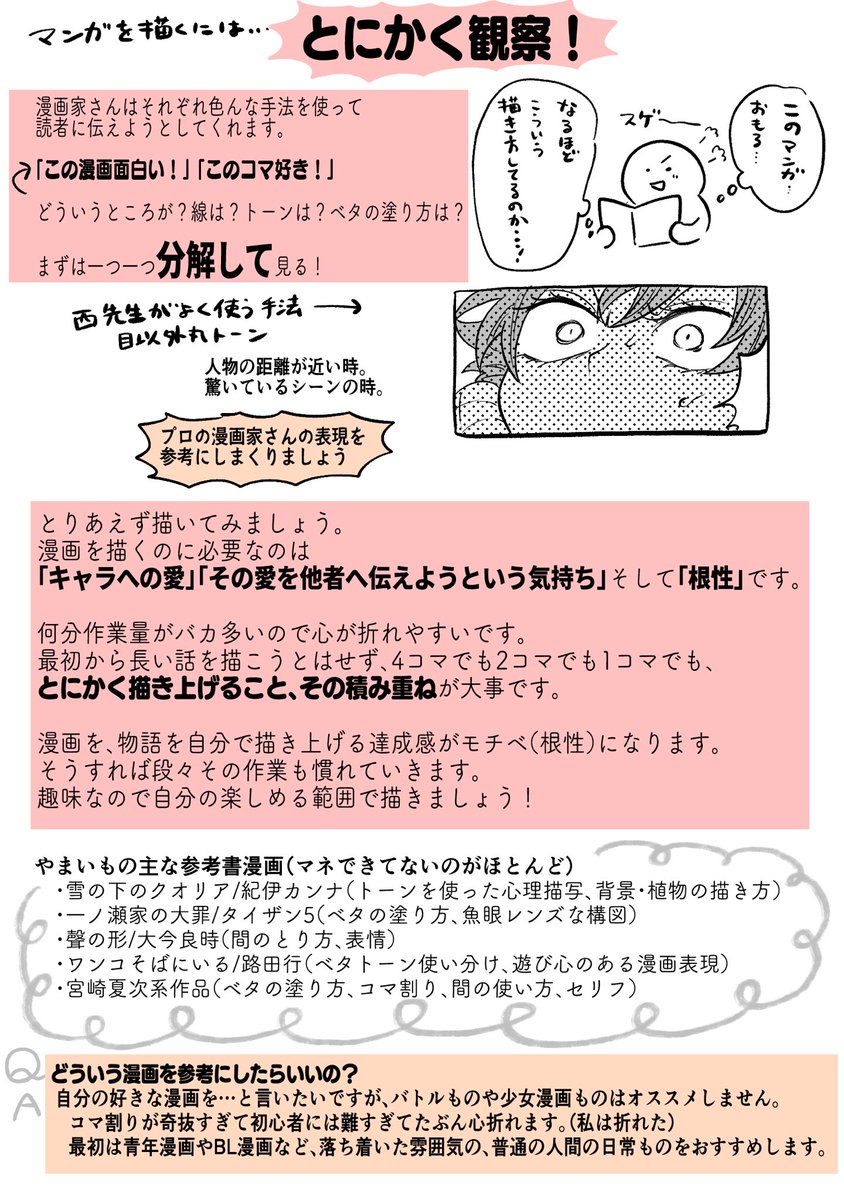 マンガを描くには…
とにかく観察！
漫画家さんはそれぞれ色んな手法を使って
読者に伝えようとしてくれます。
「この漫画面白い！」「このコマ好き！」
どういうところが？線は？トーンは？ベタの塗り方は？
まずは一つ一つ分解して見る！
このマンガ…
おもろ…
スゲー
なるほど
こういう
描き方してるのか…！
西先生がよく使う手法
目以外丸トーン
人物の距離が近い時。
驚いているシーンの時。
プロの漫画家さんの表現を
参考にしまくりましょう
とりあえず描いてみましょう。
漫画を描くのに必要なのは
「キャラへの愛」「その愛を他者へ伝えようという気持ち」そして「根性」です。
何分作業量がバカ多いので心が折れやすいです。
最初から長い話を描こうとはせず、4コマでも2コマでも1コマでも、
とにかく描き上げること、その積み重ねが大事です。
漫画を、物語を自分で描き上げる達成感がモチベ（根性）になります。
そうすれば段々その作業も慣れていきます。
趣味なので自分の楽しめる範囲で描きましょう！
やまいもの主な参考書漫画（マネできてないのがほとんど）
・雪の下のクオリア/紀伊カンナ（トーンを使った心理描写、背景・植物の描き方）
・一ノ瀬家の大罪/タイザン5（ベタの塗り方、魚眼レンズな構図）
・聲の形/大今良時（間のとり方、表情）
・ワンコそばにいる/路田行（ベタトーン使い分け、遊び心のある漫画表現）
・宮崎夏次系作品（ベタの塗り方、コマ割り、間の使い方、セリフ）
Q どういう漫画を参考にしたらいいの？
A 自分の好きな漫画を…と言いたいですが、バトルものや少女漫画ものはオススメしません。
コマ割りが奇抜すぎて初心者には難すぎてたぶん心折れます。（私は折れた）
最初は青年漫画やBL漫画など、落ち着いた雰囲気の、普通の人間の日常ものをおすすめします。